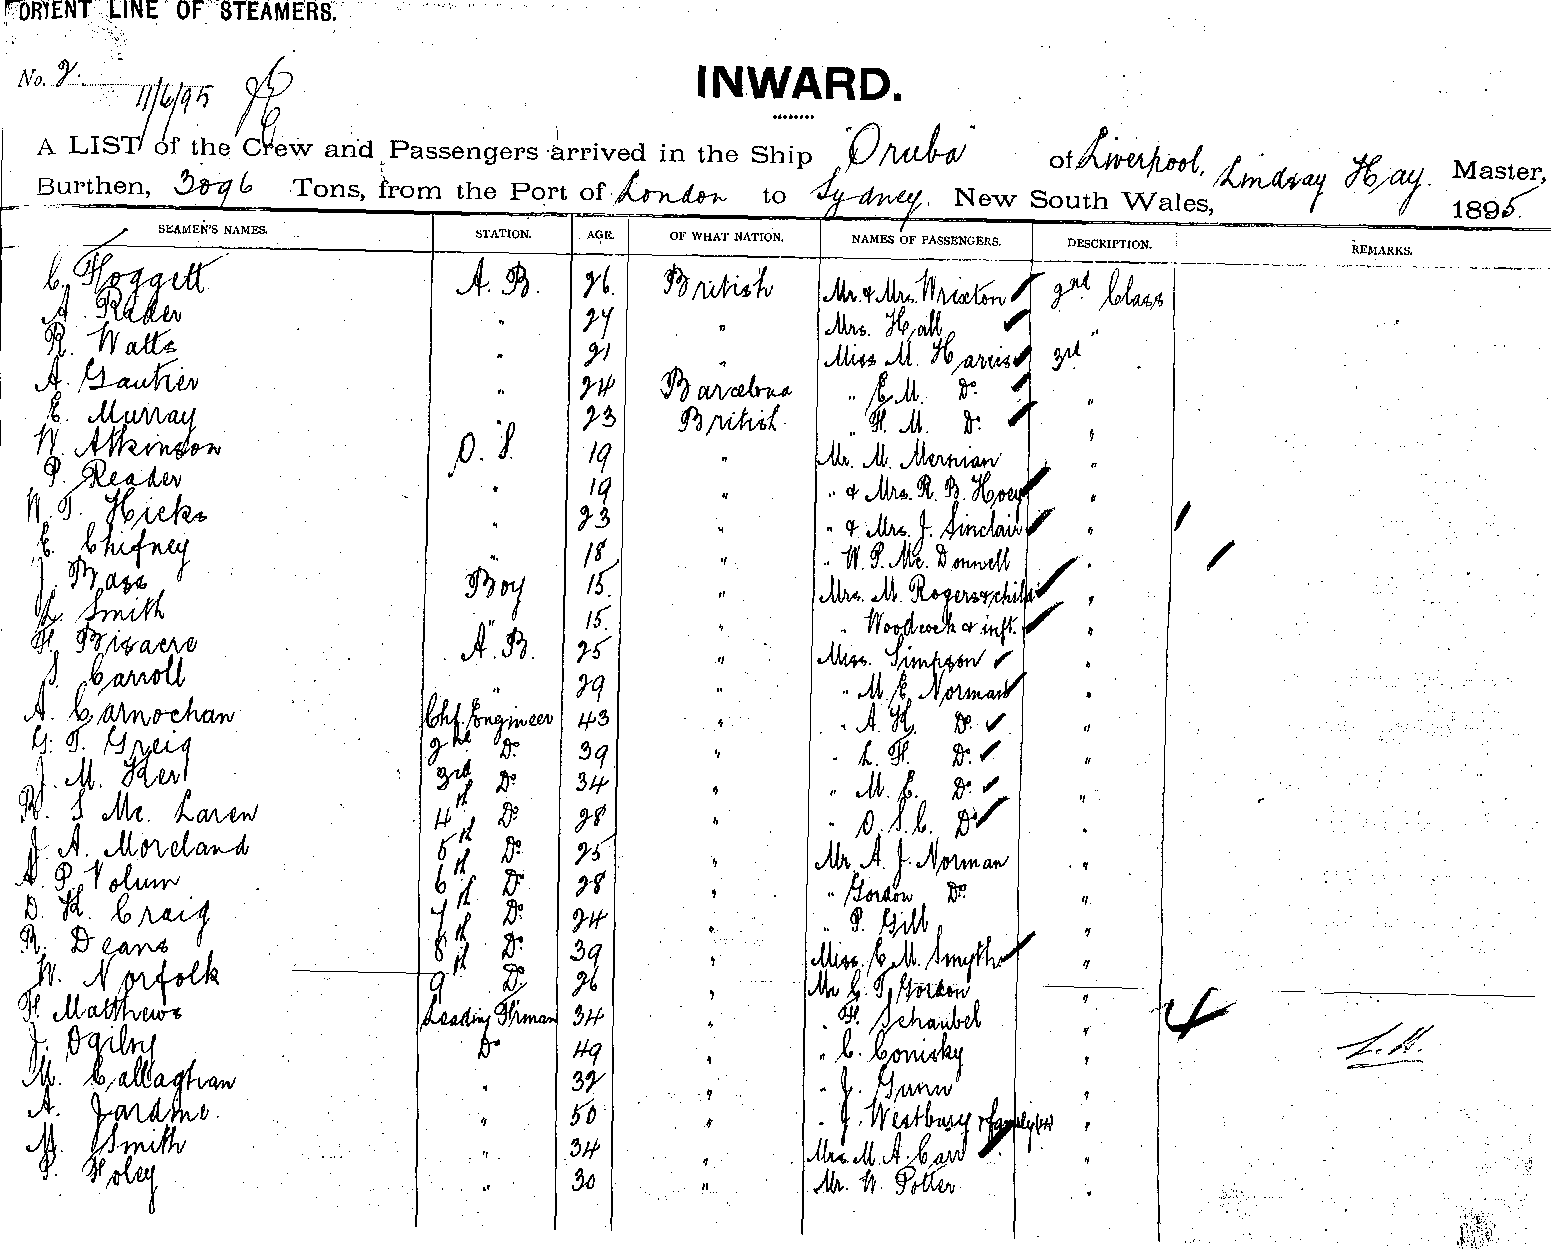 ORIENT LINE OF STEAMERS.
No. 2.
11/6/95
INWARD.
A LIST of the Crew and Passengers arrived in the Ship "Oruba" of Liverpool, Lindsay Hay. Master,
Burthen, 3096 Tons, from the Port of London to Sydney. New South Wales, 1895.
SEAMEN'S NAMES. STATION. AGE. OF WHAT NATION. NAMES OF PASSENGERS. DESCRIPTION. REMARKS.
C. Hoggett A. B. 26. British Mr. & Mrs. Wrixton 2nd Class
A. Rader " 24 " Mrs. Hall "
R. Watts " 21 " Miss M. Harris 3rd
A. Gautier " 24 Barcelona " E. M. Do "
E. Murray " 23 British " H. M. Do "
W. Atkinson O. S. 19 " Mr. M. Mernian "
P. Reader " 19 " " & Mrs. R. B. Hoey "
W. T. Hicks " 23 " " & Mrs. J. Sinclair "
E. Chifney " 18 " " W. P. Mc. Donnell "
J. Bass Boy 15. " Mrs. M. Rogers & child "
Smith " 15. " " Woodcock & inft. "
H. Bizacre A. B. 25 " Miss. Simpson "
S. Carroll " 29 " " M. E. Norman "
A. Carnochan Chf. Engineer 43 " " A. H. Do "
G. T. Greig 2nd Do 39 " " L. H. Do "
J. M. Kerl 3rd Do 34 " " M. E. Do "
R. S. Mc. Laren 4th Do 28 " " O. S. C. Do "
J. A. Moreland 5th Do 25 " Mr. A. J. Norman "
A. P. Volum 6th Do 28 " " Gordon Do "
D. H. Craig 7th Do 24 " " P. Gill "
R. Deans 8th Do 39 " Miss. C. M. Smyth "
W. Norfolk 9th Do 26 " Mr C. T. Gordon "
H. Matthews Leading Firman 34 " " H. Schaubel "
J. Ogilvy Do 49 " " C. Conisky " L.H.
M. Callaghan " 32 " " J. Gunn "
A. Jardine. " 50 " " J. Westbury & family "
M. Smith " 34 " Mrs M. A. Carr "
P. Foley " 30 " Mr. W. Potter "